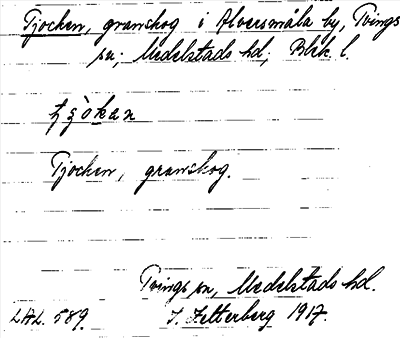 Tjocken, granskog i Alversmåla by, Tvings
sn, Medelstads hd, Blek. l.
Tjocken, granskog.
Tvings sn, Medelstads hd.
LAL. 589. J. Zetterberg 1917.